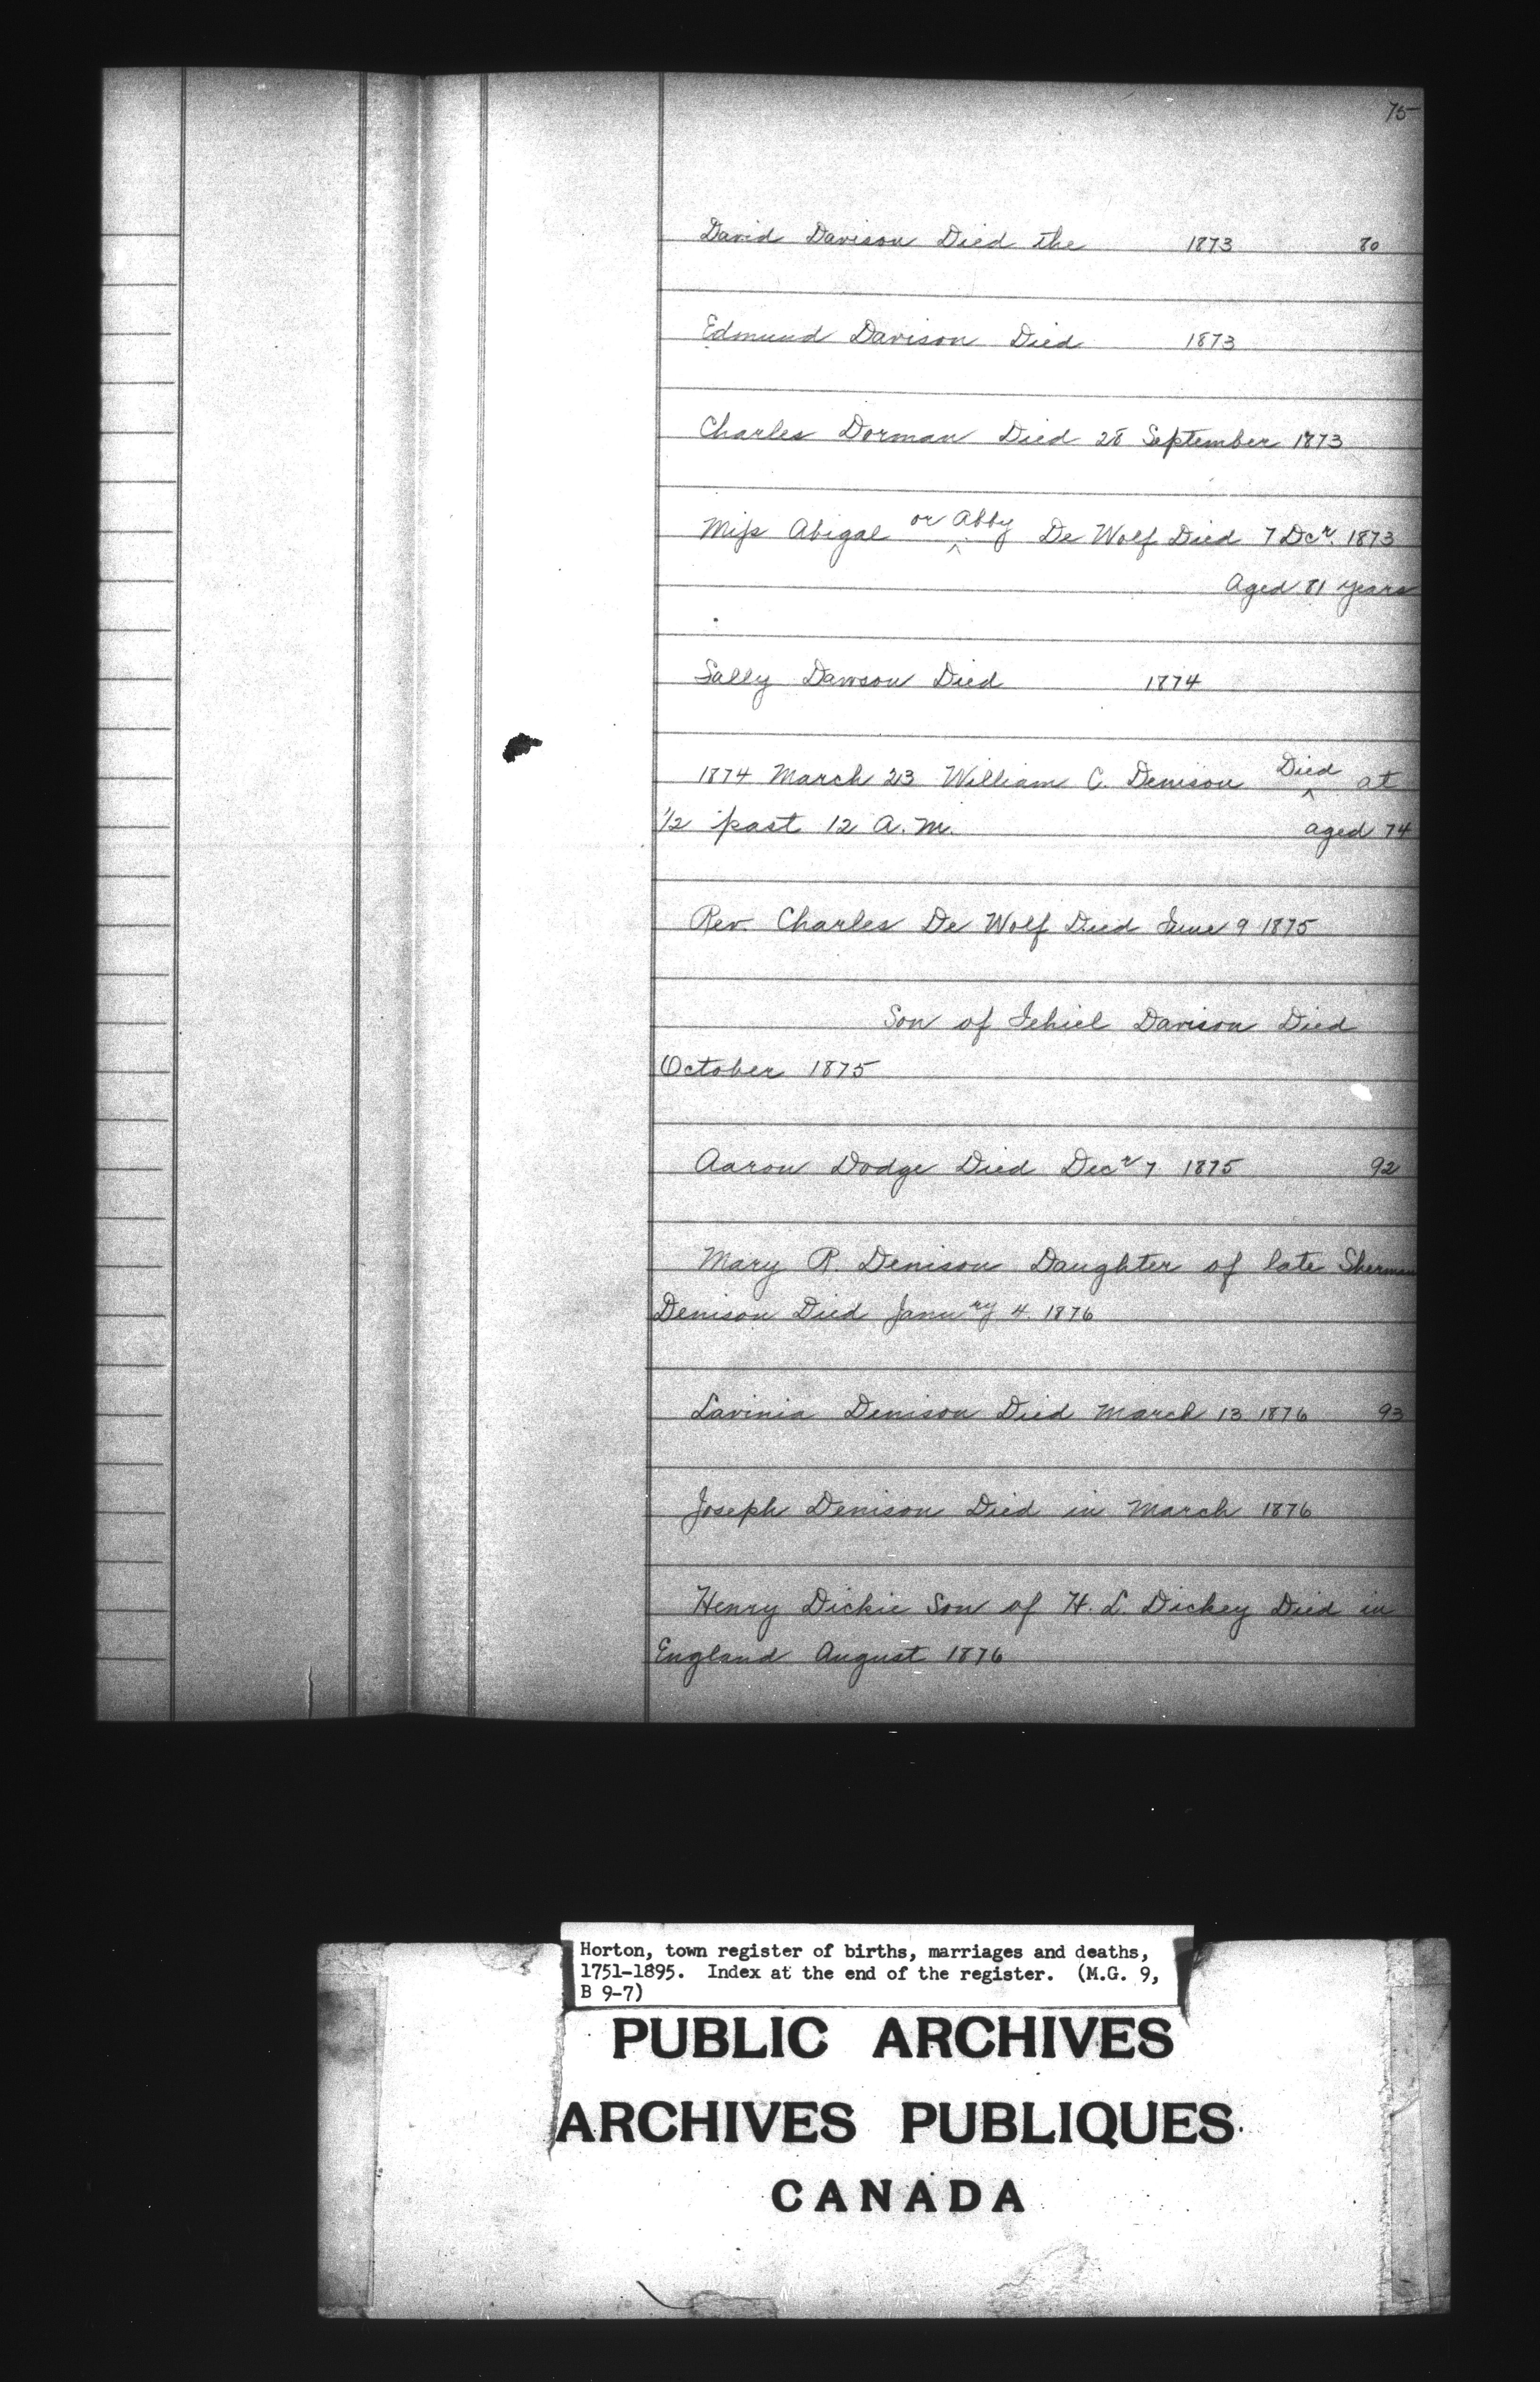 75
David Davison Died the 1873 80
Edmund Davison Died 1873
Charles Dorman Died 28 September 1873
Miss Abigal or Abby De Wolf Died 7 Dcr. 1873
Aged 81 years
Sally Dawson Died 1874
1874 March 23 William C. Denison Died at
1/2 past 12 A.M. aged 74
Rev. Charles De Wolf Died June 9 1875
Son of Jehiel Davison Died
October 1875
Aaron Dodge Died Decr 7 1875 92
Mary R. Denison Daughter of late Sherman
Denison Died Januury 4. 1876
Lavinia Denison Died March 13 1876 93
Joseph Denison Died in March 1876
Henry Dickie Son of H. L. Dickey Died in
England August 1876
Horton, town register of births, marriages and deaths,
1751-1895. Index at the end of the register. (M.G. 9,
B 9-7)
PUBLIC ARCHIVES
ARCHIVES PUBLIQUES
CANADA